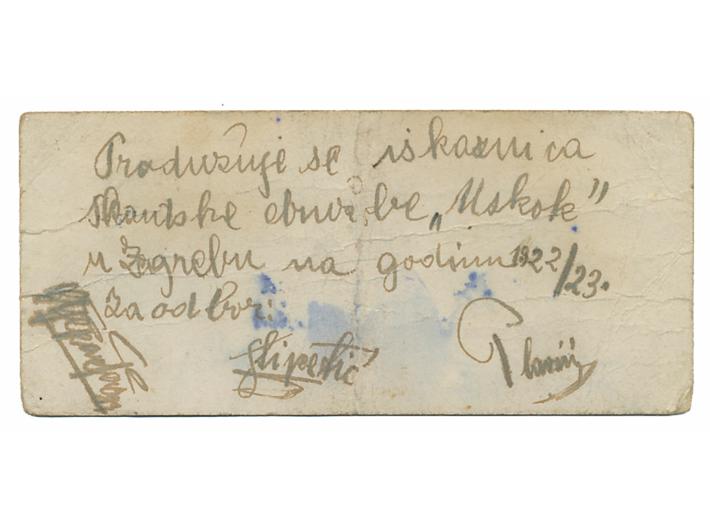 Produžuje se iskaznica
skautske družbe „Uskok”
u Zagrebu na godinu 1922/23.
Za odbor:
Stipetić